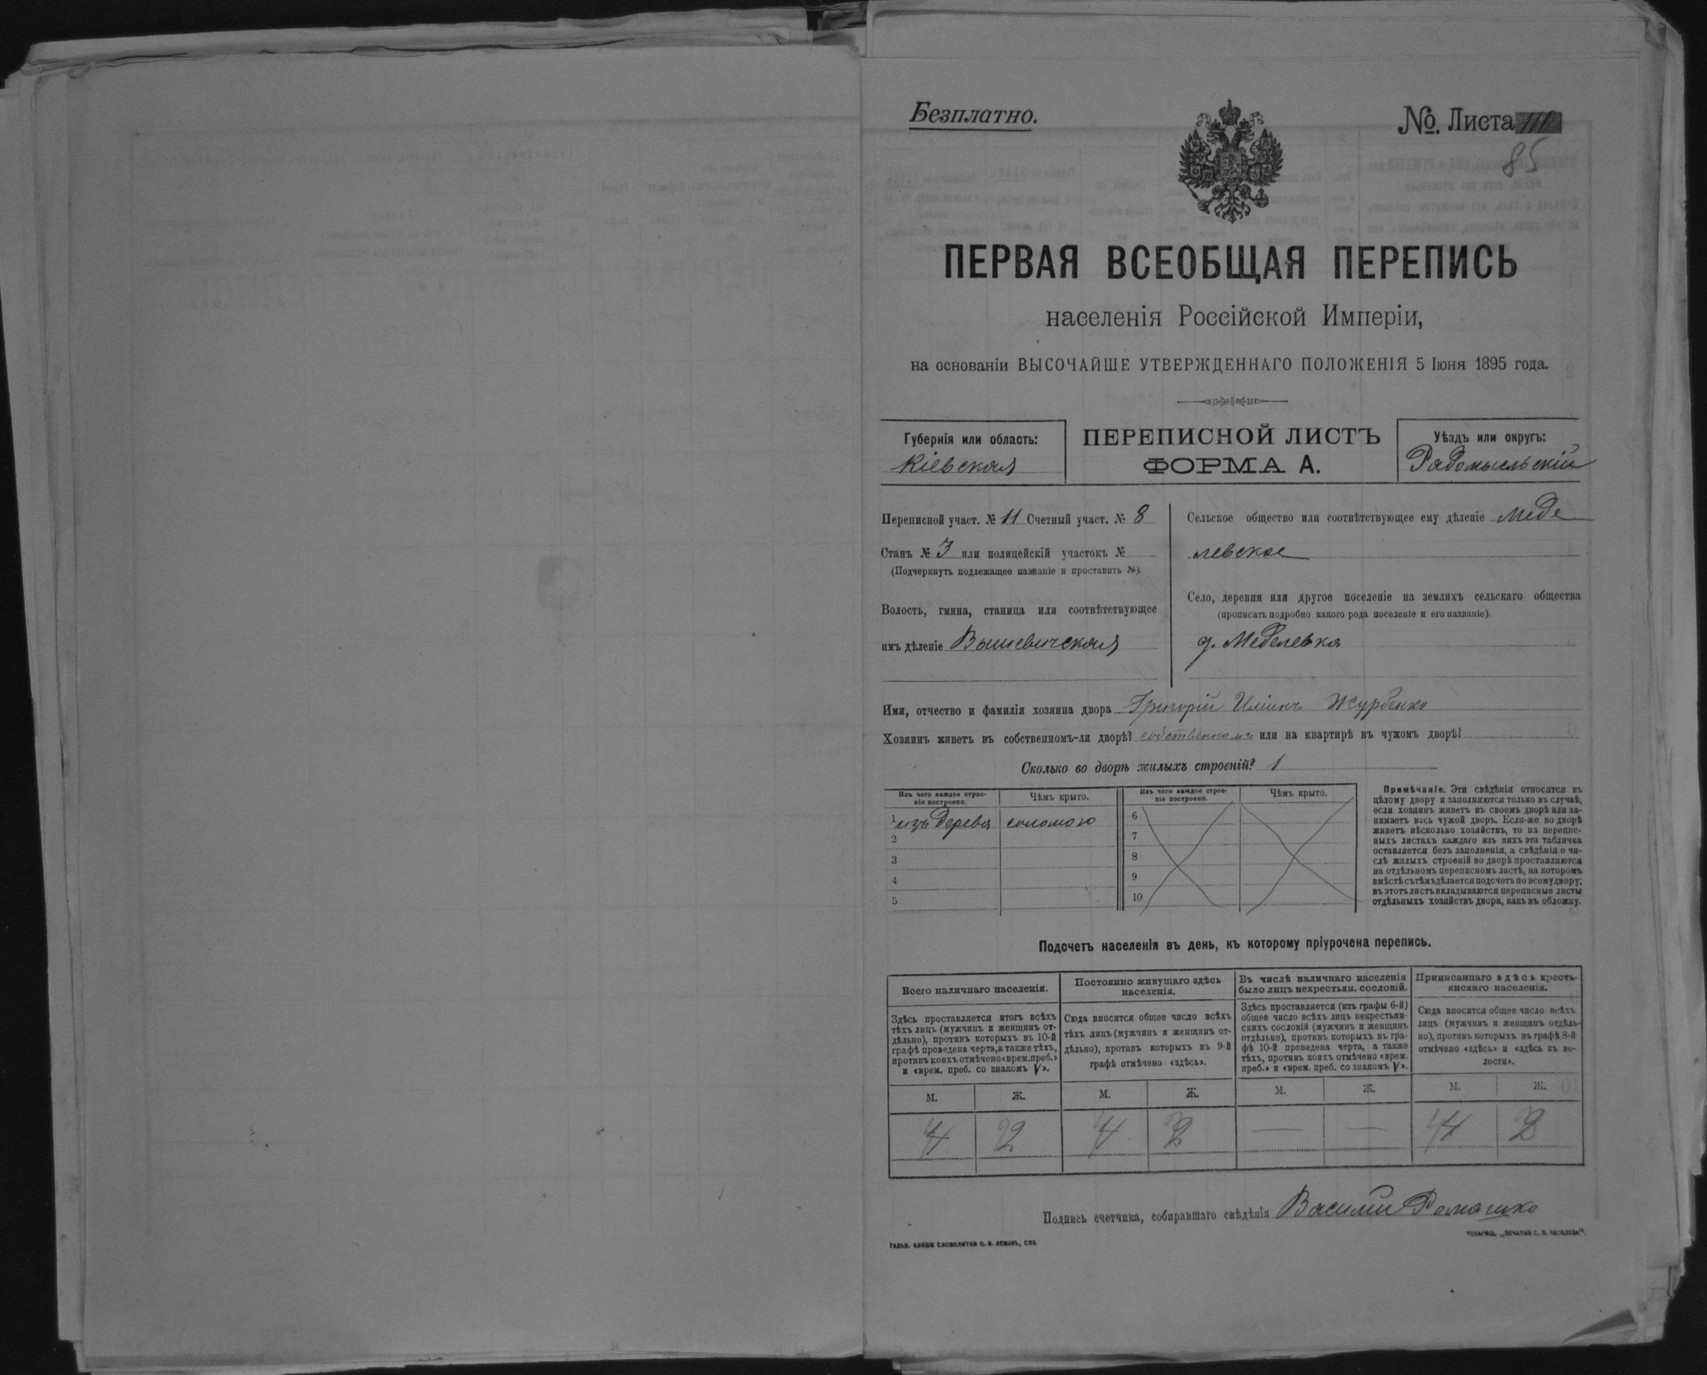 Безплатно.
№. Листа
85
ПЕРВАЯ ВСЕОБЩАЯ ПЕРЕПИСЬ
населенія Россійской Имперіи,
на основаніи ВЫСОЧАЙШЕ УТВЕРЖДЕННАГО ПОЛОЖЕНІЯ 5 Іюня 1895 года.
Губернія или область:
Кіевская
ПЕРЕПИСНОЙ ЛИСТЪ
ФОРМА А.
Уѣздъ или округъ:
Радомысльскій
Переписной участ. № 11 Счетный участ. № 8
Станъ № 3 или полицейскій участокъ №
(Подчеркнуть подлежащее названіе и проставить №).
Волость, гмина, станица или соотвѣтствующее
имъ дѣленіе Вышевичская
Сельское общество или соотвѣтствующее ему дѣленіе Меде
левское
Село, деревня или другое поселеніе на земляхъ сельскаго общества
(прописать подробно какого рода поселеніе и его названіе)
д. Меделевка
Имя, отчество и фамилія хозяина двора Григорій Ильинъ Журбенко
Хозяинъ живетъ въ собственномъ-ли дворѣ? собственномъ или на квартирѣ въ чужомъ дворѣ?
Сколько во дворѣ жилыхъ строеній? 1
Изъ чего каждое строе-
ніе построено.
Чѣмъ крыто.
1 изъ дерева соломою
2
3
4
5
Изъ чего каждое строе-
ніе построено.
Чѣмъ крыто.
6
7
8
9
10
Примѣчаніе. Эти свѣдѣнія относятся къ
цѣлому двору и заполняются только въ случаѣ,
если хозяинъ живетъ въ своемъ дворѣ или за-
нимаетъ весь чужой дворъ. Если-же во дворѣ
живетъ нѣсколько хозяйствъ, то на перепис-
ныхъ листахъ каждаго изъ нихъ эта табличка
оставляется безъ заполненія, а свѣдѣнія о чи-
слѣ жилыхъ строеній во дворѣ проставляются
на отдѣльномъ переписномъ листѣ, на которомъ
вмѣстѣ съ тѣмъ дѣлается подсчетъ по всему двору;
въ этотъ листъ вкладываются переписные листы
отдѣльныхъ хозяйствъ двора, какъ въ обложку.
Подсчетъ населенія въ день, къ которому пріурочена перепись.
Всего наличнаго населенія.
Здѣсь проставляется итогъ всѣхъ
тѣхъ лицъ (мужчинъ и женщинъ от-
дѣльно), противъ которыхъ въ 10-й
графѣ проведена черта, а также тѣхъ,
противъ коихъ отмѣчено «врем. преб.»
и «врем. преб. со знакомъ V».
М. Ж.
4 2
Постоянно живущаго здѣсь
населенія.
Сюда вносится общее число всѣхъ
тѣхъ лицъ (мужчинъ и женщинъ от-
дѣльно), противъ которыхъ въ 9-й
графѣ отмѣчено «здѣсь».
М. Ж.
4 2
Въ числѣ наличнаго населенія
было лицъ некрестьян. сословій.
Здѣсь проставляется (изъ графы 6-й)
общее число всѣхъ лицъ некрестьян-
скихъ сословій (мужчинъ и женщинъ
отдѣльно), противъ которыхъ въ гра-
фѣ 10-й проведена черта, а также
тѣхъ, противъ коихъ отмѣчено «врем.
преб.» и «врем. преб. со знакомъ V».
М. Ж.
— —
Приписаннаго здѣсь кресть-
янскаго населенія.
Сюда вносится общее число всѣхъ
лицъ (мужчинъ и женщинъ отдѣль-
но), противъ которыхъ въ графѣ 8-й
отмѣчено «здѣсь» и «здѣсь въ во-
лости».
М. Ж.
4 2
Подпись счетчика, собиравшаго свѣдѣнія Василий Ромашко
Гальв. клише словолитни О. И. Леманъ, СПБ
Товарищ. „Печатня С. П. Яковлева“.